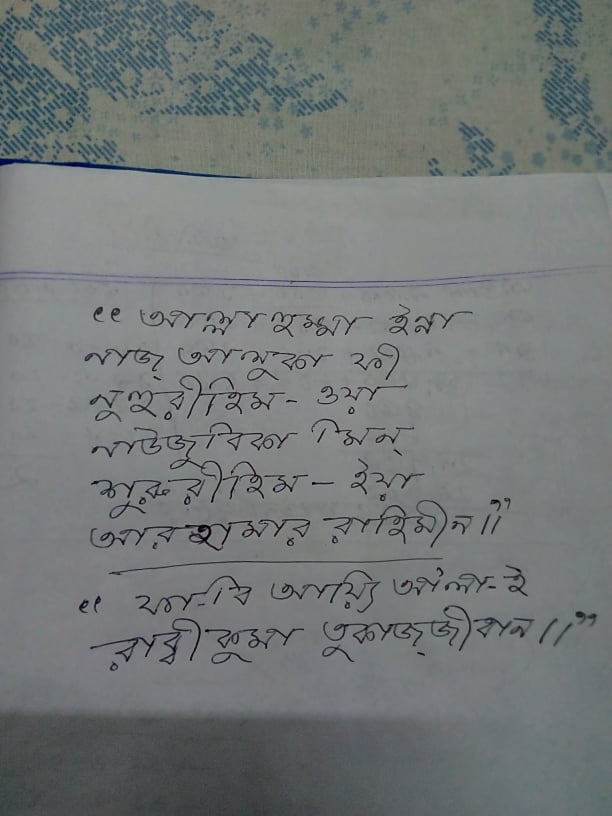 “আল্লাহুম্মা ইন্না
নাজ্ আলুকা ফী
নুহুরীহিম- ওয়া
নাউজুবিকা মিন্
শুরুরীহিম - ইয়া
আরহামার রাহিমীন॥”
“ ফা-বি আয়্যি আলা-ই
রাব্বীকুমা তুকাজ্জীবান॥”